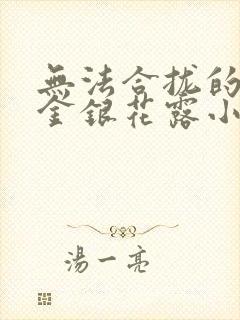 無法合拢的
金銀花露小
湯一亮